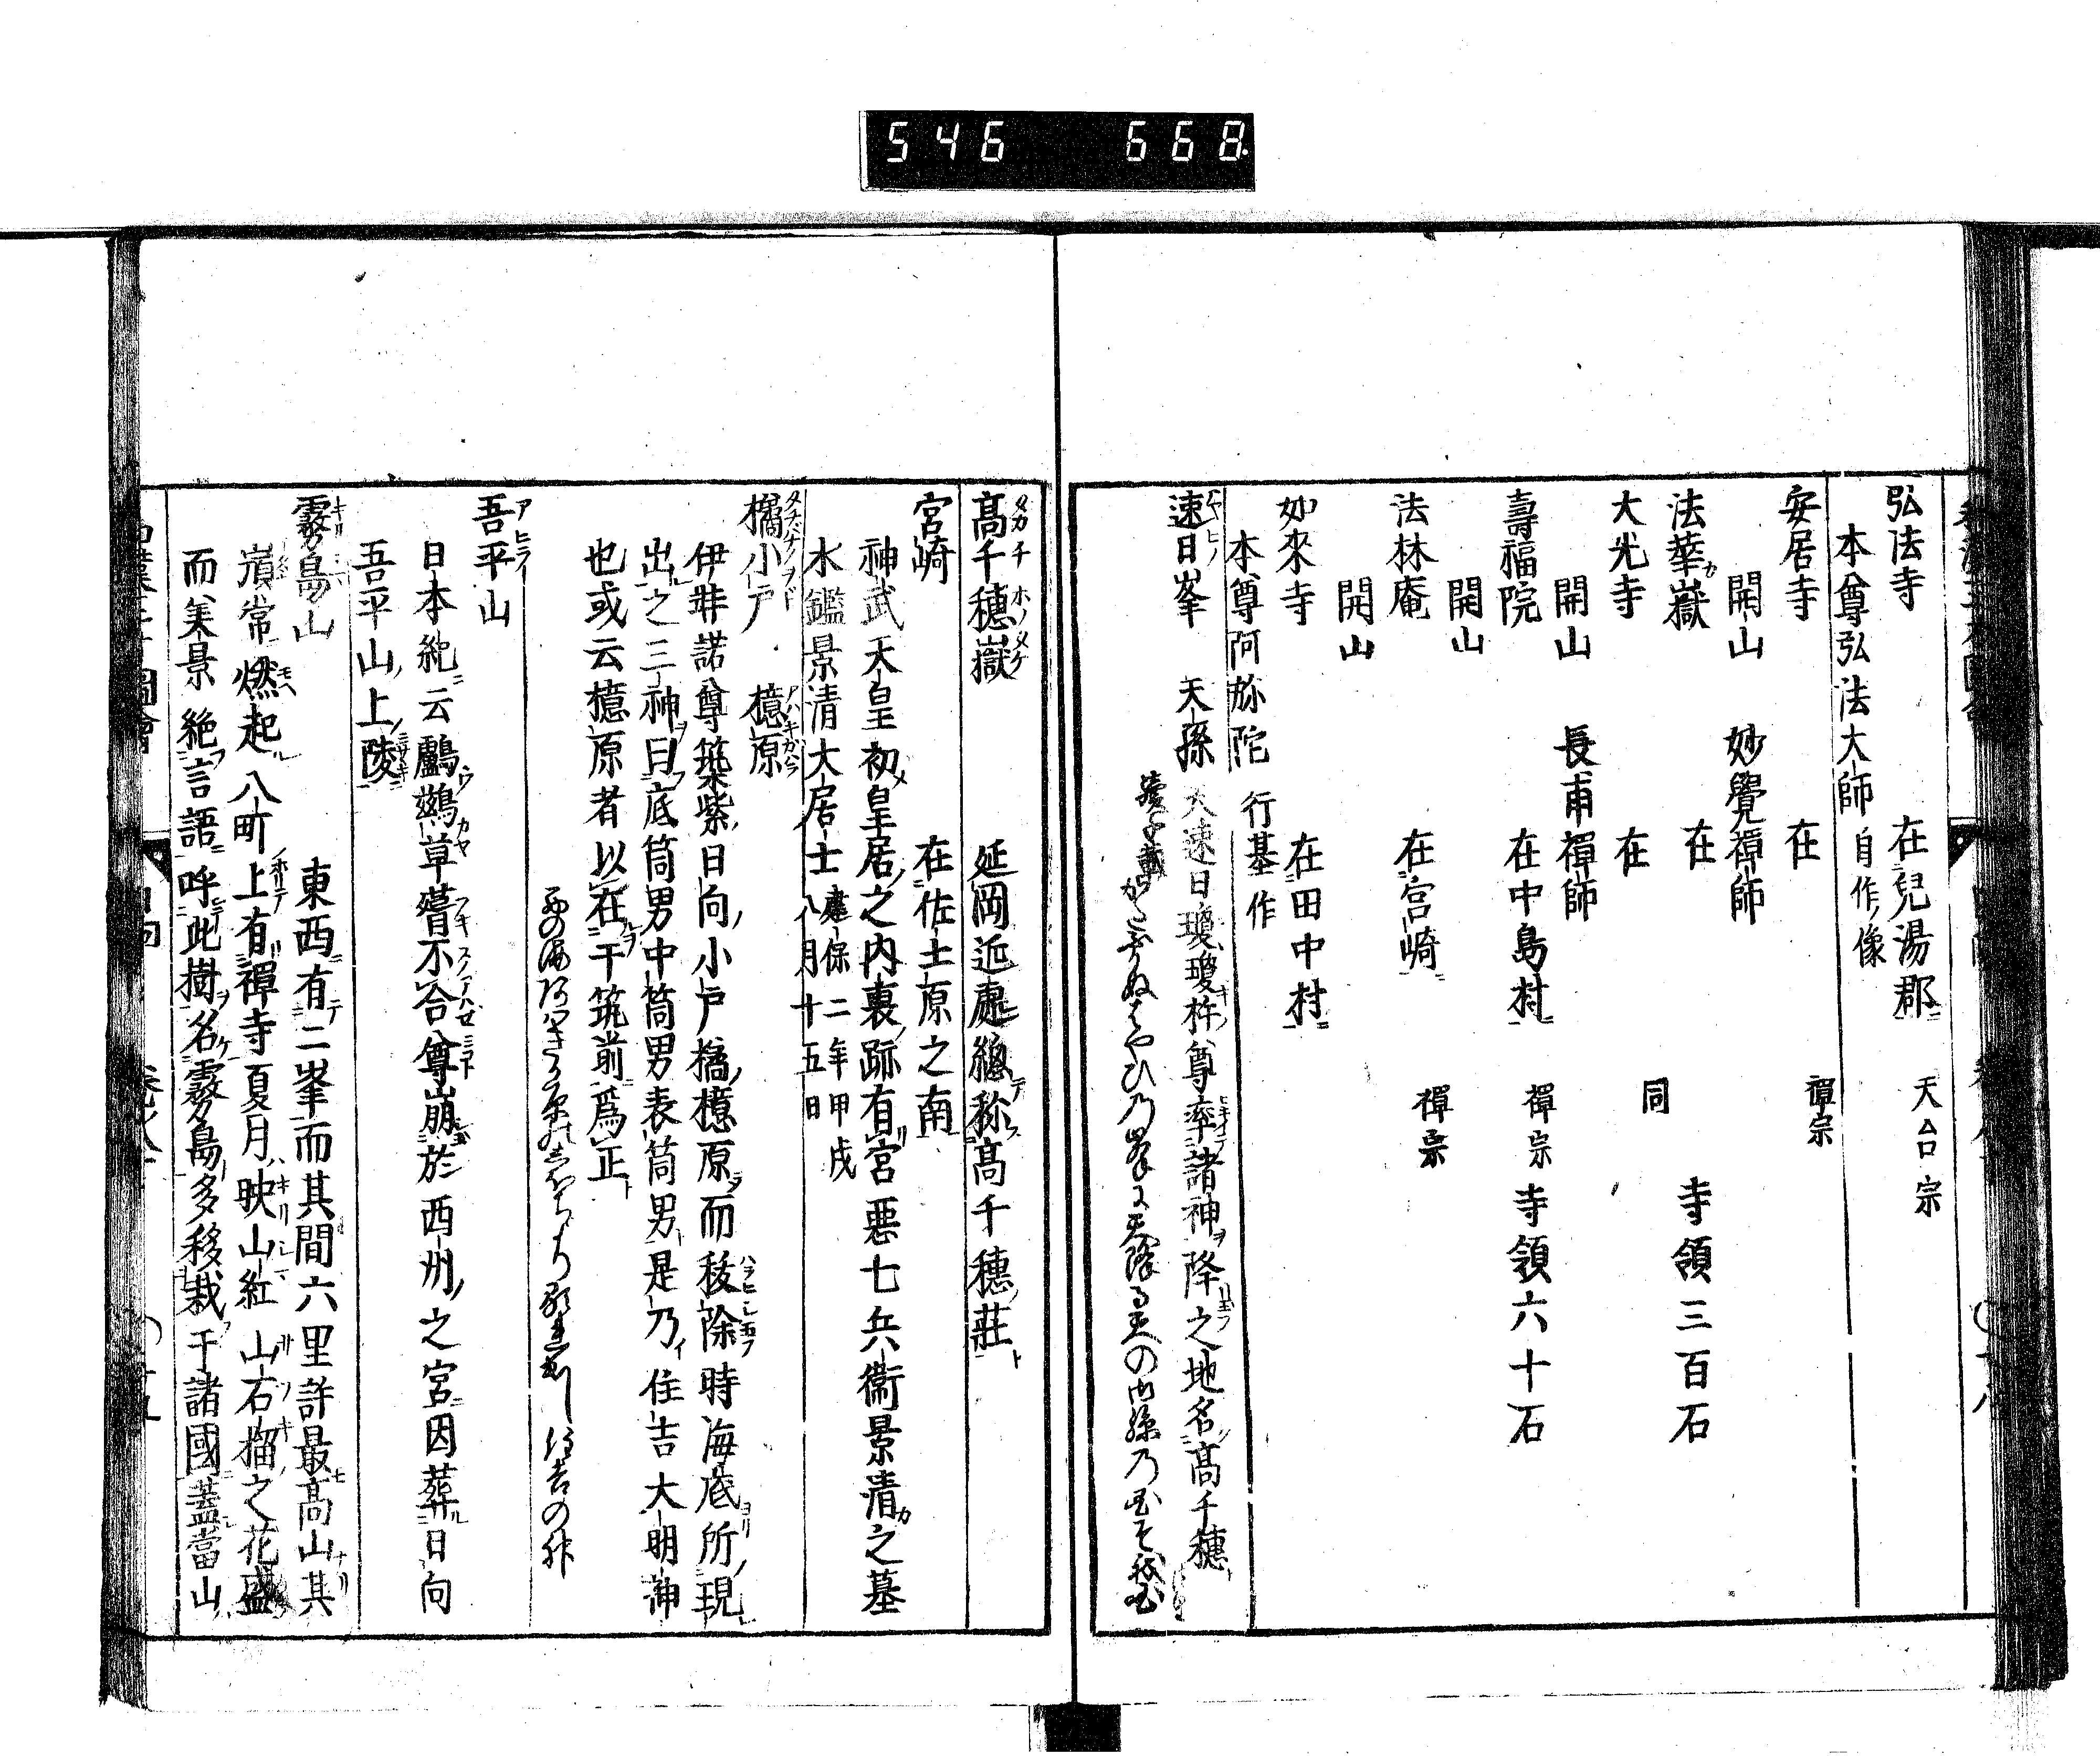 546 668
弘法寺 在兒湯郡 天台宗
本尊弘法大師 自作像
安居寺 在 禪宗
開山 妙覺禪師
法華嶽 在 寺領三百石
大光寺 在 同
開山 長甫禪師
壽福院 在中島村 禪宗 寺領六十石
開山
法林庵 在宮崎 禪宗
開山
如來寺 在田中村
本尊阿弥陀 行基作
速日峯 天孫 天速日瓊瓊杵尊率諸神降之地名高千穗
高千穗嶽 延岡近處總称高千穗莊
宮崎 在佐土原之南
神武天皇初皇居之内裏跡有宮悪七兵衞景清之墓
水鑑景清大居士 建保二年甲戌八月十五日
橘小戸 檍原
伊弉諾尊筑紫日向小戸橘檍原而秡除時海底所現
出之三神曰底筒男中筒男表筒男是乃住吉大明神
也或云檍原者以在于筑前爲正
吾平山
日本紀云鸕鷀草葺不合尊崩於西州之宮因葬日向
吾平山上陵
霧島山 東西有二峯而其間六里許最高山其
嶺常燃起八町上有禪寺夏月映山紅山石榴之花盛
而美景絶言語呼此樹名霧島多移栽于諸國蓋當山